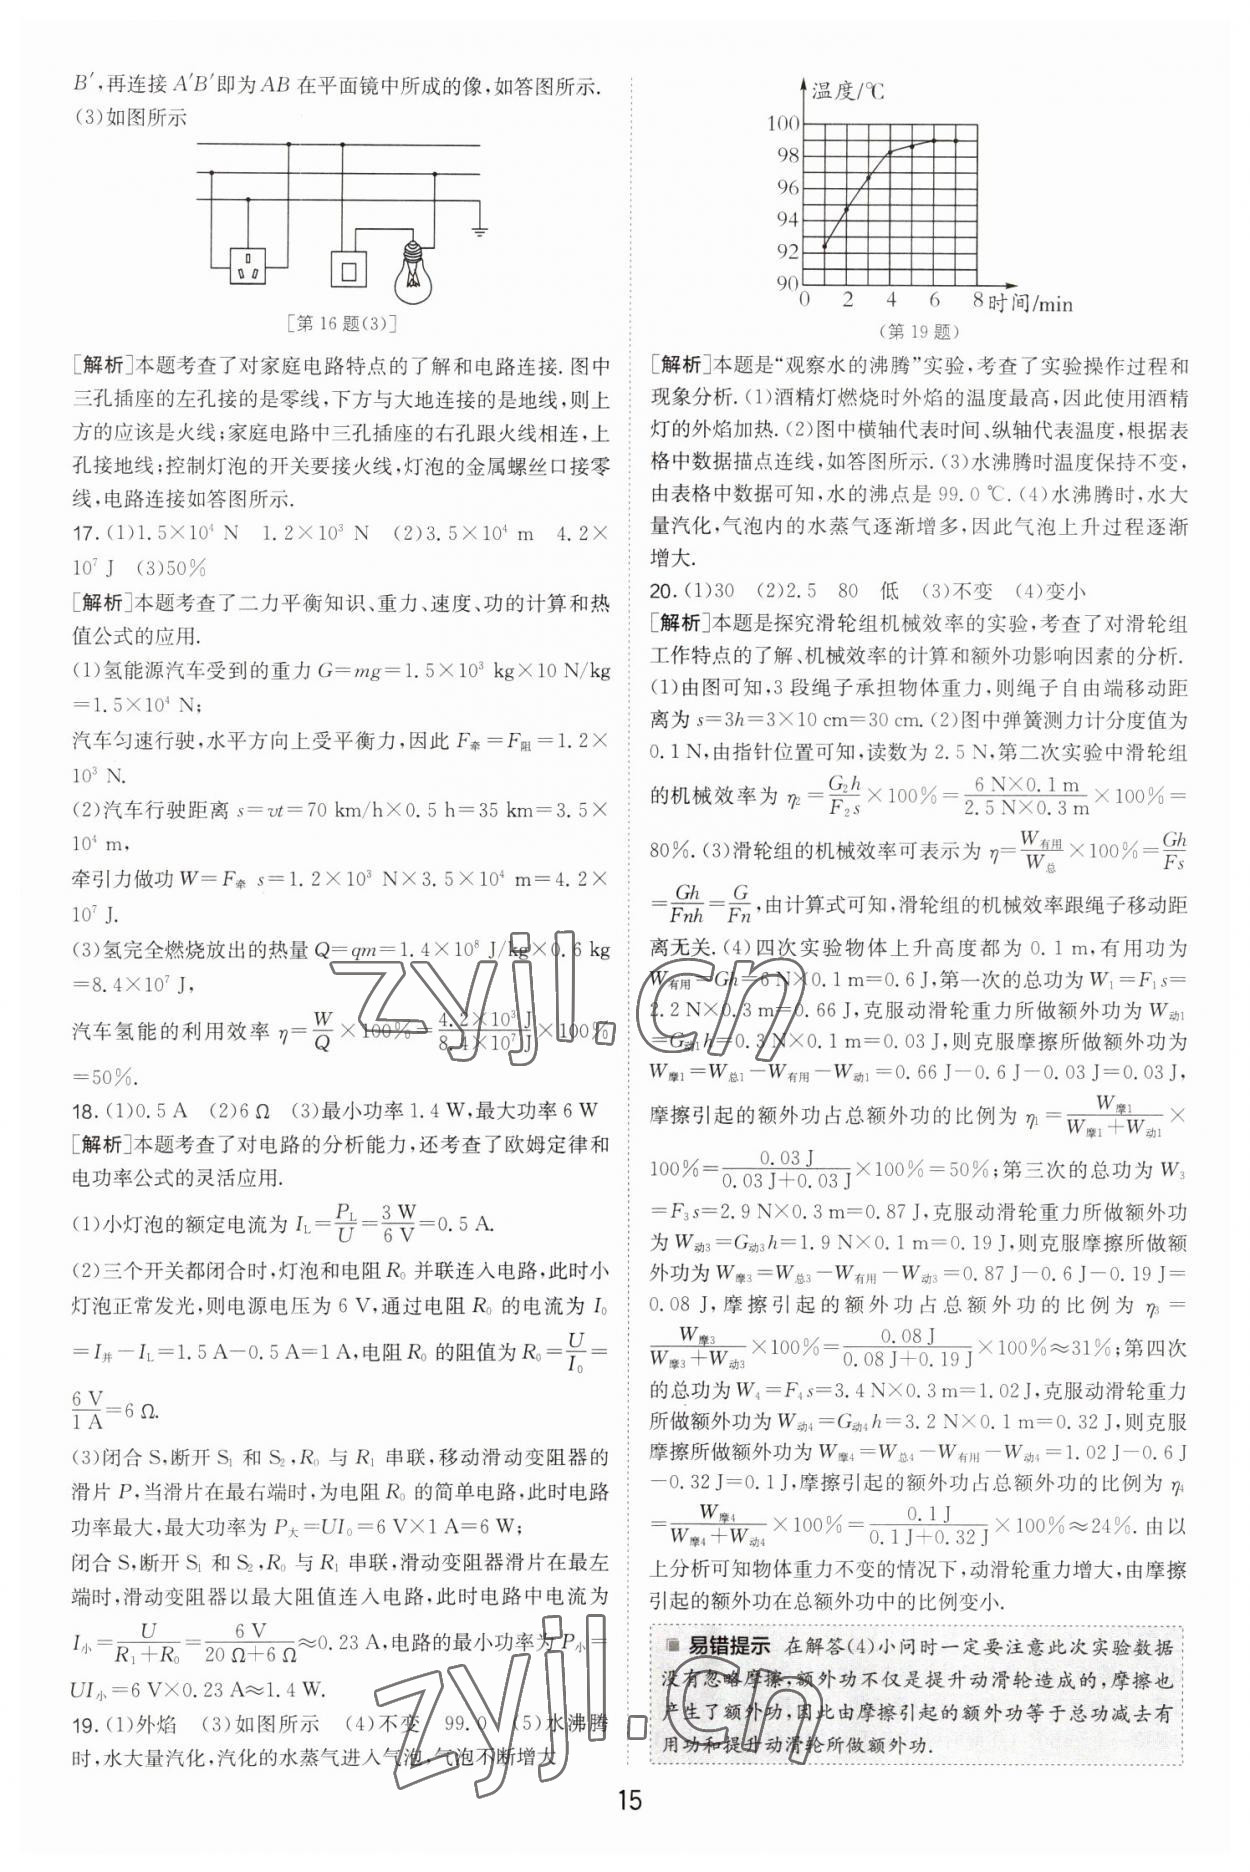 B′,再连接 A′B′即为 AB 在平面镜中所成的像,如答图所示.
(3)如图所示
[第 16 题(3)]
[解析]本题考查了对家庭电路特点的了解和电路连接. 图中
三孔插座的左孔接的是零线,下方与大地连接的是地线,则上
方的应该是火线;家庭电路中三孔插座的右孔跟火线相连,上
孔接地线;控制灯泡的开关要接火线,灯泡的金属螺丝口接零
线,电路连接如答图所示.
17. (1)1.5×10⁴ N 1.2×10³ N (2)3.5×10⁴ m 4.2×
10⁷ J (3)50%
[解析]本题考查了二力平衡知识、重力、速度、功的计算和热
值公式的应用.
(1)氢能源汽车受到的重力 G=mg=1.5×10³ kg×10 N/kg
=1.5×10⁴ N;
汽车匀速行驶,水平方向上受平衡力,因此 F牵=F阻=1.2×
10³ N.
(2)汽车行驶距离 s=vt=70 km/h×0.5 h=35 km=3.5×
10⁴ m,
牵引力做功 W=F牵 s=1.2×10³ N×3.5×10⁴ m=4.2×
10⁷ J.
(3)氢完全燃烧放出的热量 Q=qm=1.4×10⁸ J/kg×0.6 kg
=8.4×10⁷ J,
汽车氢能的利用效率 η=W/Q×100%=4.2×10⁷ J/8.4×10⁷ J×100%
=50%.
18. (1)0.5 A (2)6 Ω (3)最小功率 1.4 W,最大功率 6 W
[解析]本题考查了对电路的分析能力,还考查了欧姆定律和
电功率公式的灵活应用.
(1)小灯泡的额定电流为 I_L=P_L/U=3 W/6 V=0.5 A.
(2)三个开关都闭合时,灯泡和电阻 R₀ 并联连入电路,此时小
灯泡正常发光,则电源电压为 6 V,通过电阻 R₀ 的电流为 I₀
=I并-I_L=1.5 A-0.5 A=1 A,电阻 R₀ 的阻值为 R₀=U/I₀=
6 V/1 A=6 Ω.
(3)闭合 S,断开 S₁ 和 S₂,R₀ 与 R₁ 串联,移动滑动变阻器的
滑片 P,当滑片在最右端时,为电阻 R₀ 的简单电路,此时电路
功率最大,最大功率为 P大=UI₀=6 V×1 A=6 W;
闭合 S,断开 S₁ 和 S₂,R₀ 与 R₁ 串联,滑动变阻器滑片在最左
端时,滑动变阻器以最大阻值连入电路,此时电路中电流为
I小=U/(R₁+R₀)=6 V/(20 Ω+6 Ω)≈0.23 A,电路的最小功率为 P小=
UI小=6 V×0.23 A≈1.4 W.
19. (1)外焰 (3)如图所示 (4)不变 99.0 (5)水沸腾
时,水大量汽化,汽化的水蒸气进入气泡,气泡不断增大
温度/℃
100
98
96
94
92
90
0 2 4 6 8 时间/min
(第 19 题)
[解析]本题是“观察水的沸腾”实验,考查了实验操作过程和
现象分析. (1)酒精灯燃烧时外焰的温度最高,因此使用酒精
灯的外焰加热. (2)图中横轴代表时间、纵轴代表温度,根据表
格中数据描点连线,如答图所示. (3)水沸腾时温度保持不变,
由表格中数据可知,水的沸点是 99.0 ℃. (4)水沸腾时,水大
量汽化,气泡内的水蒸气逐渐增多,因此气泡上升过程逐渐
增大.
20. (1)30 (2)2.5 80 低 (3)不变 (4)变小
[解析]本题是探究滑轮组机械效率的实验,考查了对滑轮组
工作特点的了解、机械效率的计算和额外功影响因素的分析.
(1)由图可知,3 段绳子承担物体重力,则绳子自由端移动距
离为 s=3h=3×10 cm=30 cm. (2)图中弹簧测力计分度值为
0.1 N,由指针位置可知,读数为 2.5 N,第二次实验中滑轮组
的机械效率为 η₂=G₂h/F₂s×100%=6 N×0.1 m/2.5 N×0.3 m×100%=
80%. (3)滑轮组的机械效率可表示为 η=W有用/W总×100%=Gh/Fs
=Gh/Fnh=G/Fn,由计算式可知,滑轮组的机械效率跟绳子移动距
离无关. (4)四次实验物体上升高度都为 0.1 m,有用功为
W有用=Gh=6 N×0.1 m=0.6 J,第一次的总功为 W₁=F₁s=
2.2 N×0.3 m=0.66 J,克服动滑轮重力所做额外功为 W动1
=G动1h=0.3 N×0.1 m=0.03 J,则克服摩擦所做额外功为
W摩1=W总1-W有用-W动1=0.66 J-0.6 J-0.03 J=0.03 J,
摩擦引起的额外功占总额外功的比例为 η₁=W摩1/(W摩1+W动1)×
100%=0.03 J/(0.03 J+0.03 J)×100%=50%;第三次的总功为 W₃
=F₃s=2.9 N×0.3 m=0.87 J,克服动滑轮重力所做额外功
为 W动3=G动3h=1.9 N×0.1 m=0.19 J,则克服摩擦所做额
外功为 W摩3=W总3-W有用-W动3=0.87 J-0.6 J-0.19 J=
0.08 J,摩擦引起的额外功占总额外功的比例为 η₃=
W摩3/(W摩3+W动3)×100%=0.08 J/(0.08 J+0.19 J)×100%≈31%;第四次
的总功为 W₄=F₄s=3.4 N×0.3 m=1.02 J,克服动滑轮重力
所做额外功为 W动4=G动4h=3.2 N×0.1 m=0.32 J,则克服
摩擦所做额外功为 W摩4=W总4-W有用-W动4=1.02 J-0.6 J
-0.32 J=0.1 J,摩擦引起的额外功占总额外功的比例为 η₄
=W摩4/(W摩4+W动4)×100%=0.1 J/(0.1 J+0.32 J)×100%≈24%. 由以
上分析可知物体重力不变的情况下,动滑轮重力增大,由摩擦
引起的额外功在总额外功中的比例变小.
易错提示 在解答(4)小问时一定要注意此次实验数据
没有忽略摩擦,额外功不仅是提升动滑轮造成的,摩擦也
产生了额外功,因此由摩擦引起的额外功等于总功减去有
用功和提升动滑轮所做额外功.
15
zyjl.cn
zyjl.cn